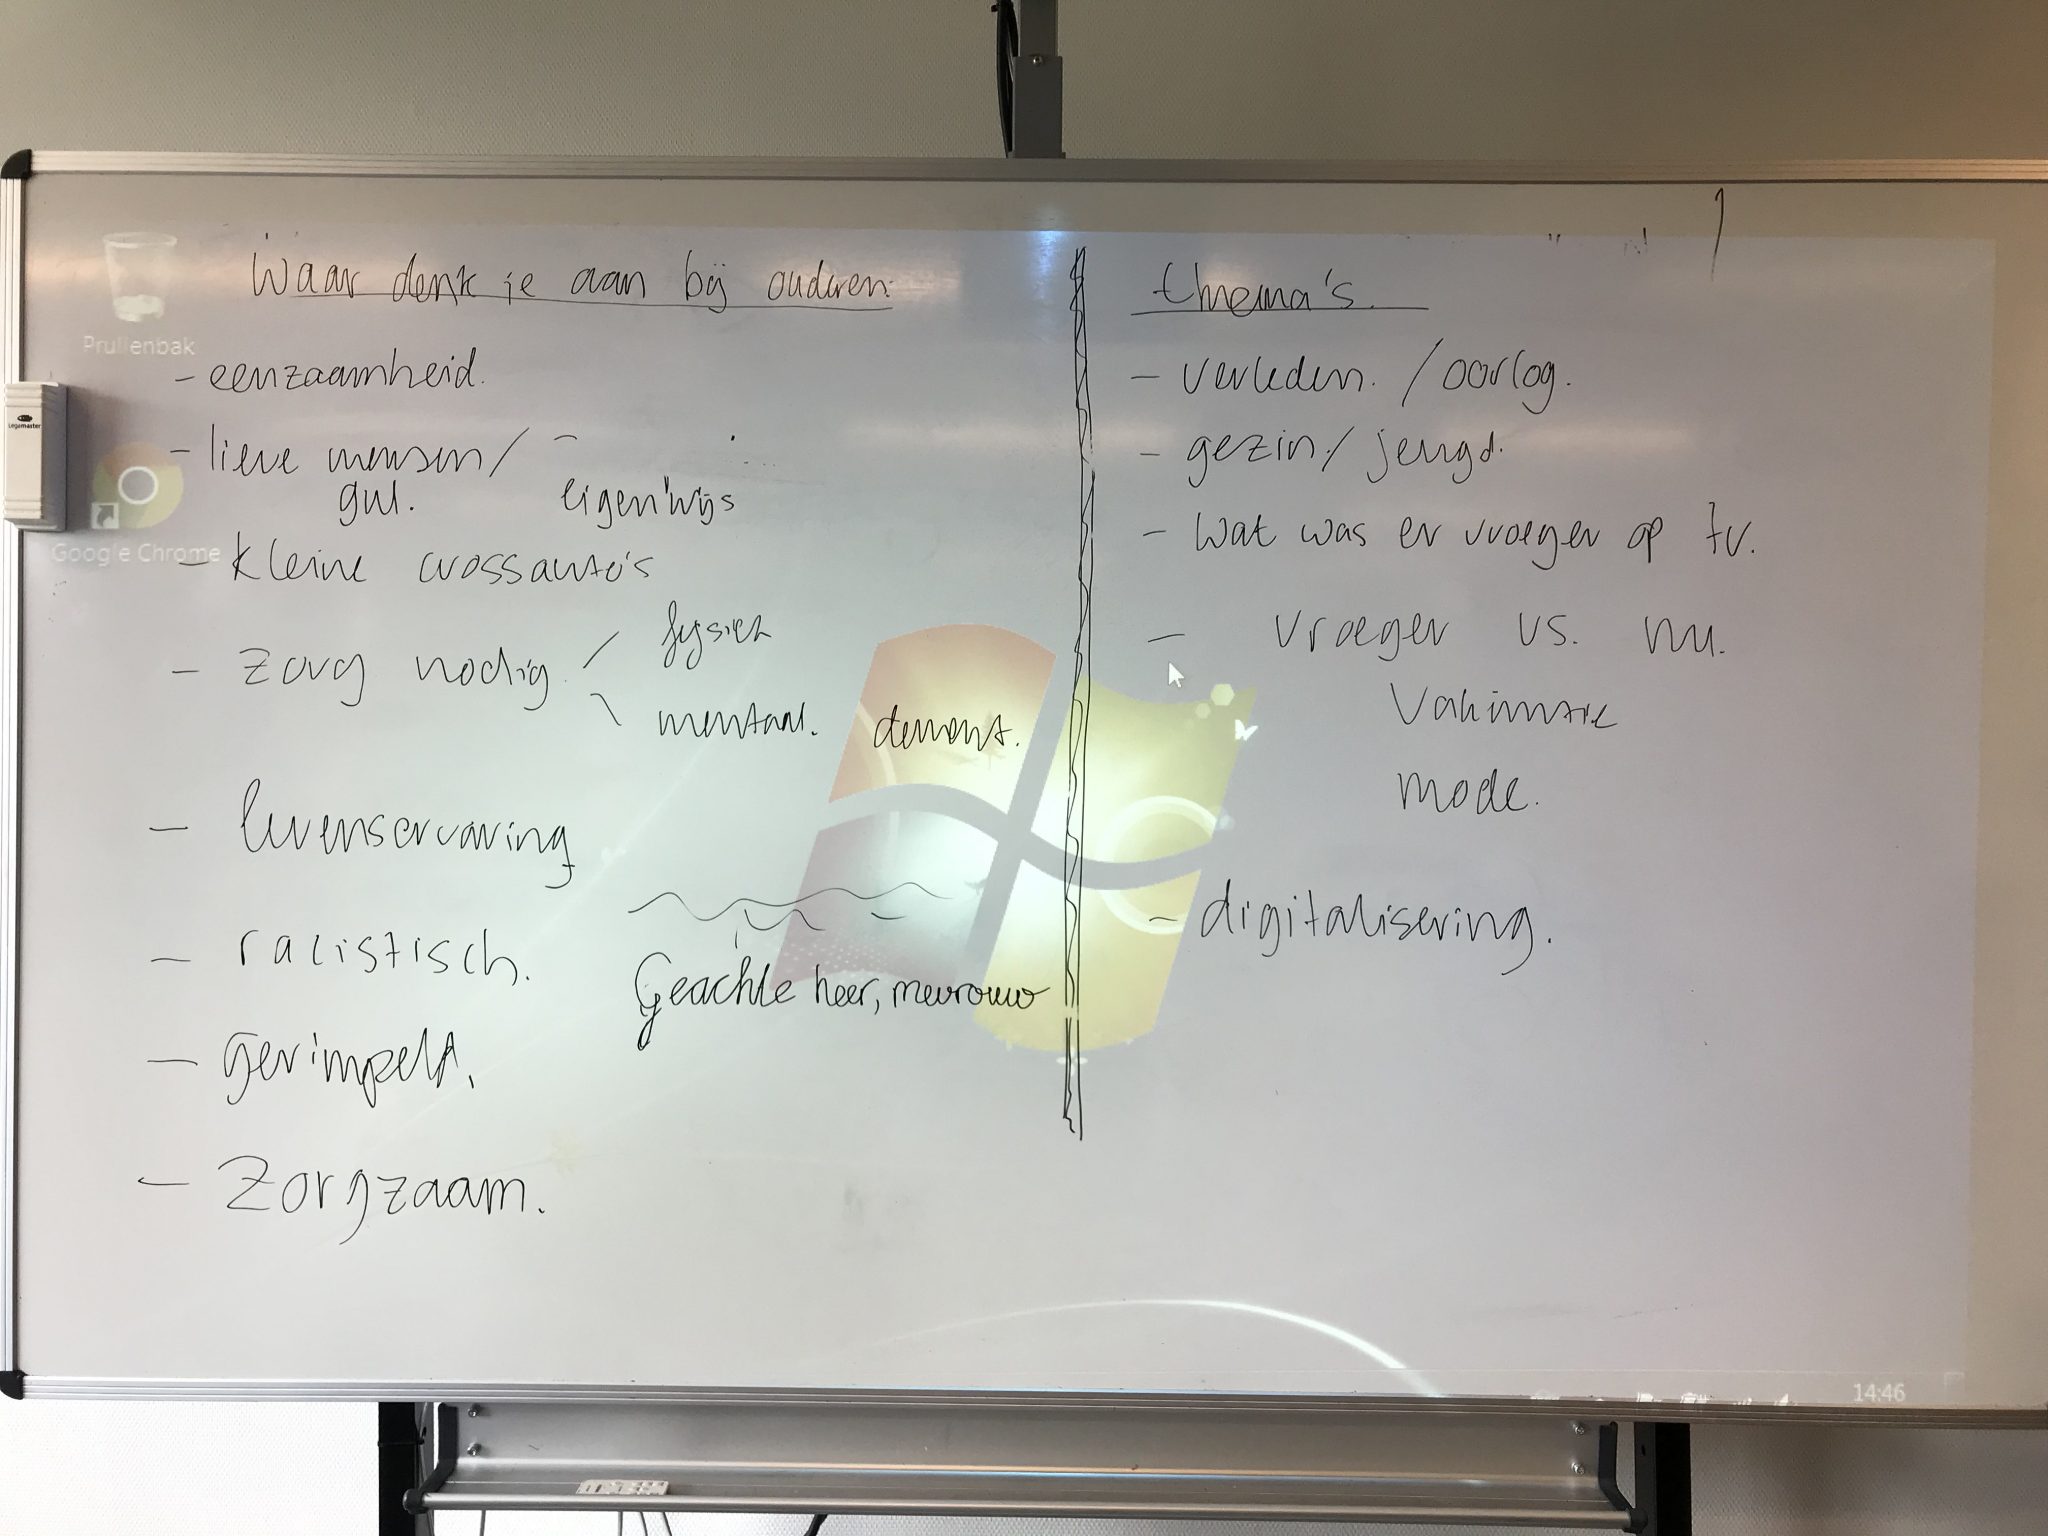 Waar denk je aan bij ouderen:
- eenzaamheid.
- lieve mensen /
gul.
eigenwijs
- kleine crossauto's
- zorg nodig
fysiek
mentaal. dement.
- levenservaring
- racistisch.
Geachte heer, mevrouw
- gerimpelt.
- Zorgzaam.
thema's.
- verleden. / oorlog.
- gezin / jeugd.
- wat was er vroeger op tv.
- vroeger vs. nu.
Vakantie
mode.
- digitalisering.
Prullenbak
Google Chrome
Legamaster
14:46